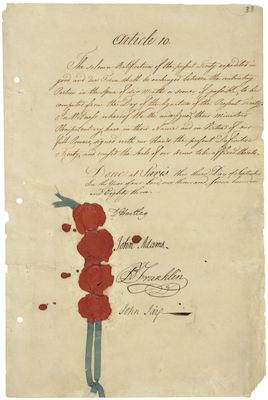 Article 10.
The solemn Ratifications of the present Treaty expedited in
good and due Form shall be exchanged between the contracting
Parties in the Space of Six Months or sooner if possible, to be
computed from the Day of the Signature of the present Treaty.
In Witness whereof We the undersigned their Ministers
Plenipotentiary have in their Name and in Virtue of our
Full Powers signed with our Hands the present Definitive
Treaty, and caused the Seals of our Arms to be affixed thereto.
Done at Paris, this third Day of September,
In the Year of our Lord one thousand seven hundred
and Eighty three.
D Hartley
John Adams.
B Franklin
John Jay